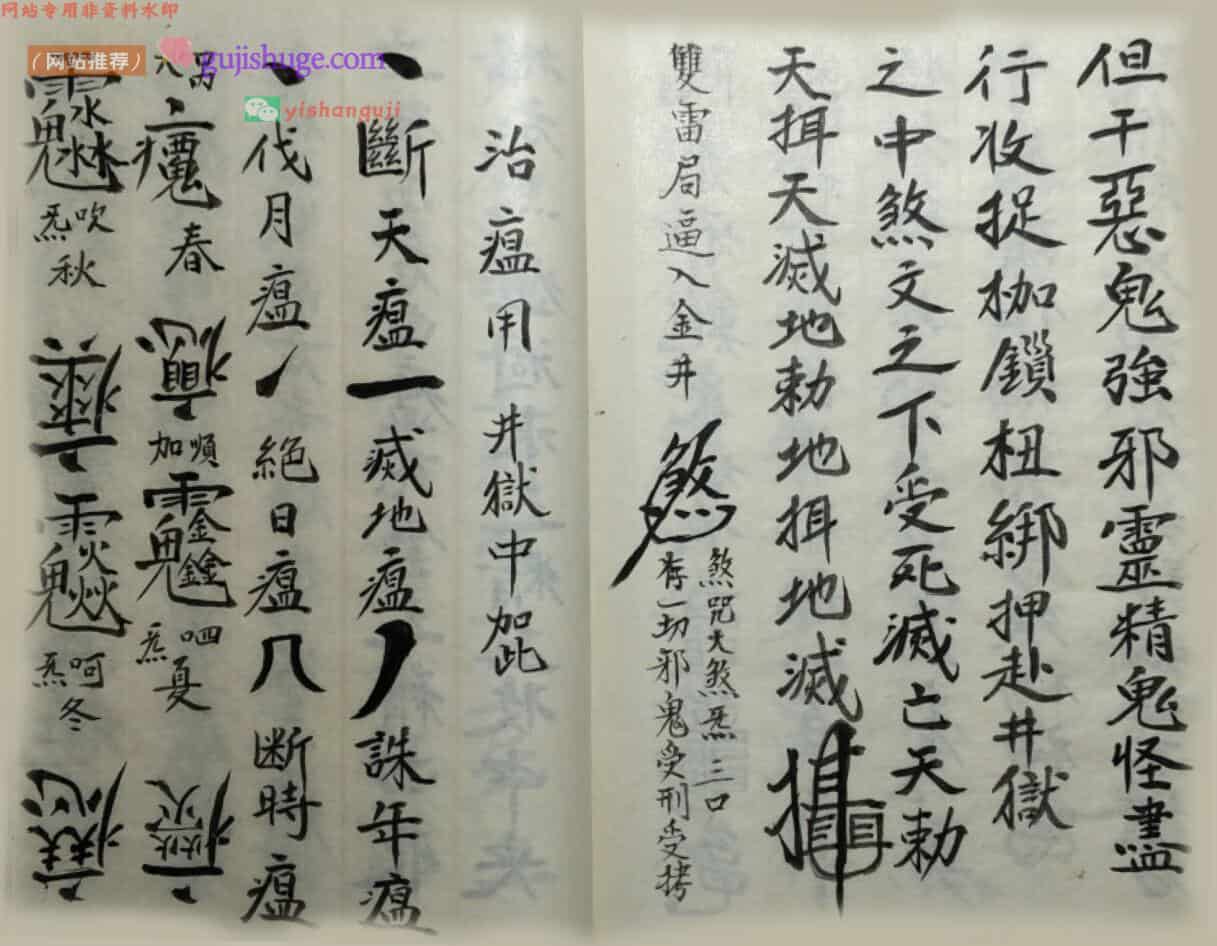 网站专用非资料水印
（网站推荐）
gujishuge.com
yishanguji
但干惡鬼強邪靈精鬼怪盡
行收捉枷鎖杻綁押赴井獄
之中煞文之下受死滅亡天勅
天揖天滅地勅地揖地滅
雙雷局逼入金井
煞咒大煞炁三口
存一切邪鬼受刑受拷
治瘟用井獄中加此
丶斷天瘟一滅地瘟丿誅年瘟
丶伐月瘟丿絕日瘟八断時瘟
春
加順
呬炁
夏
吹炁
秋
呵炁
冬